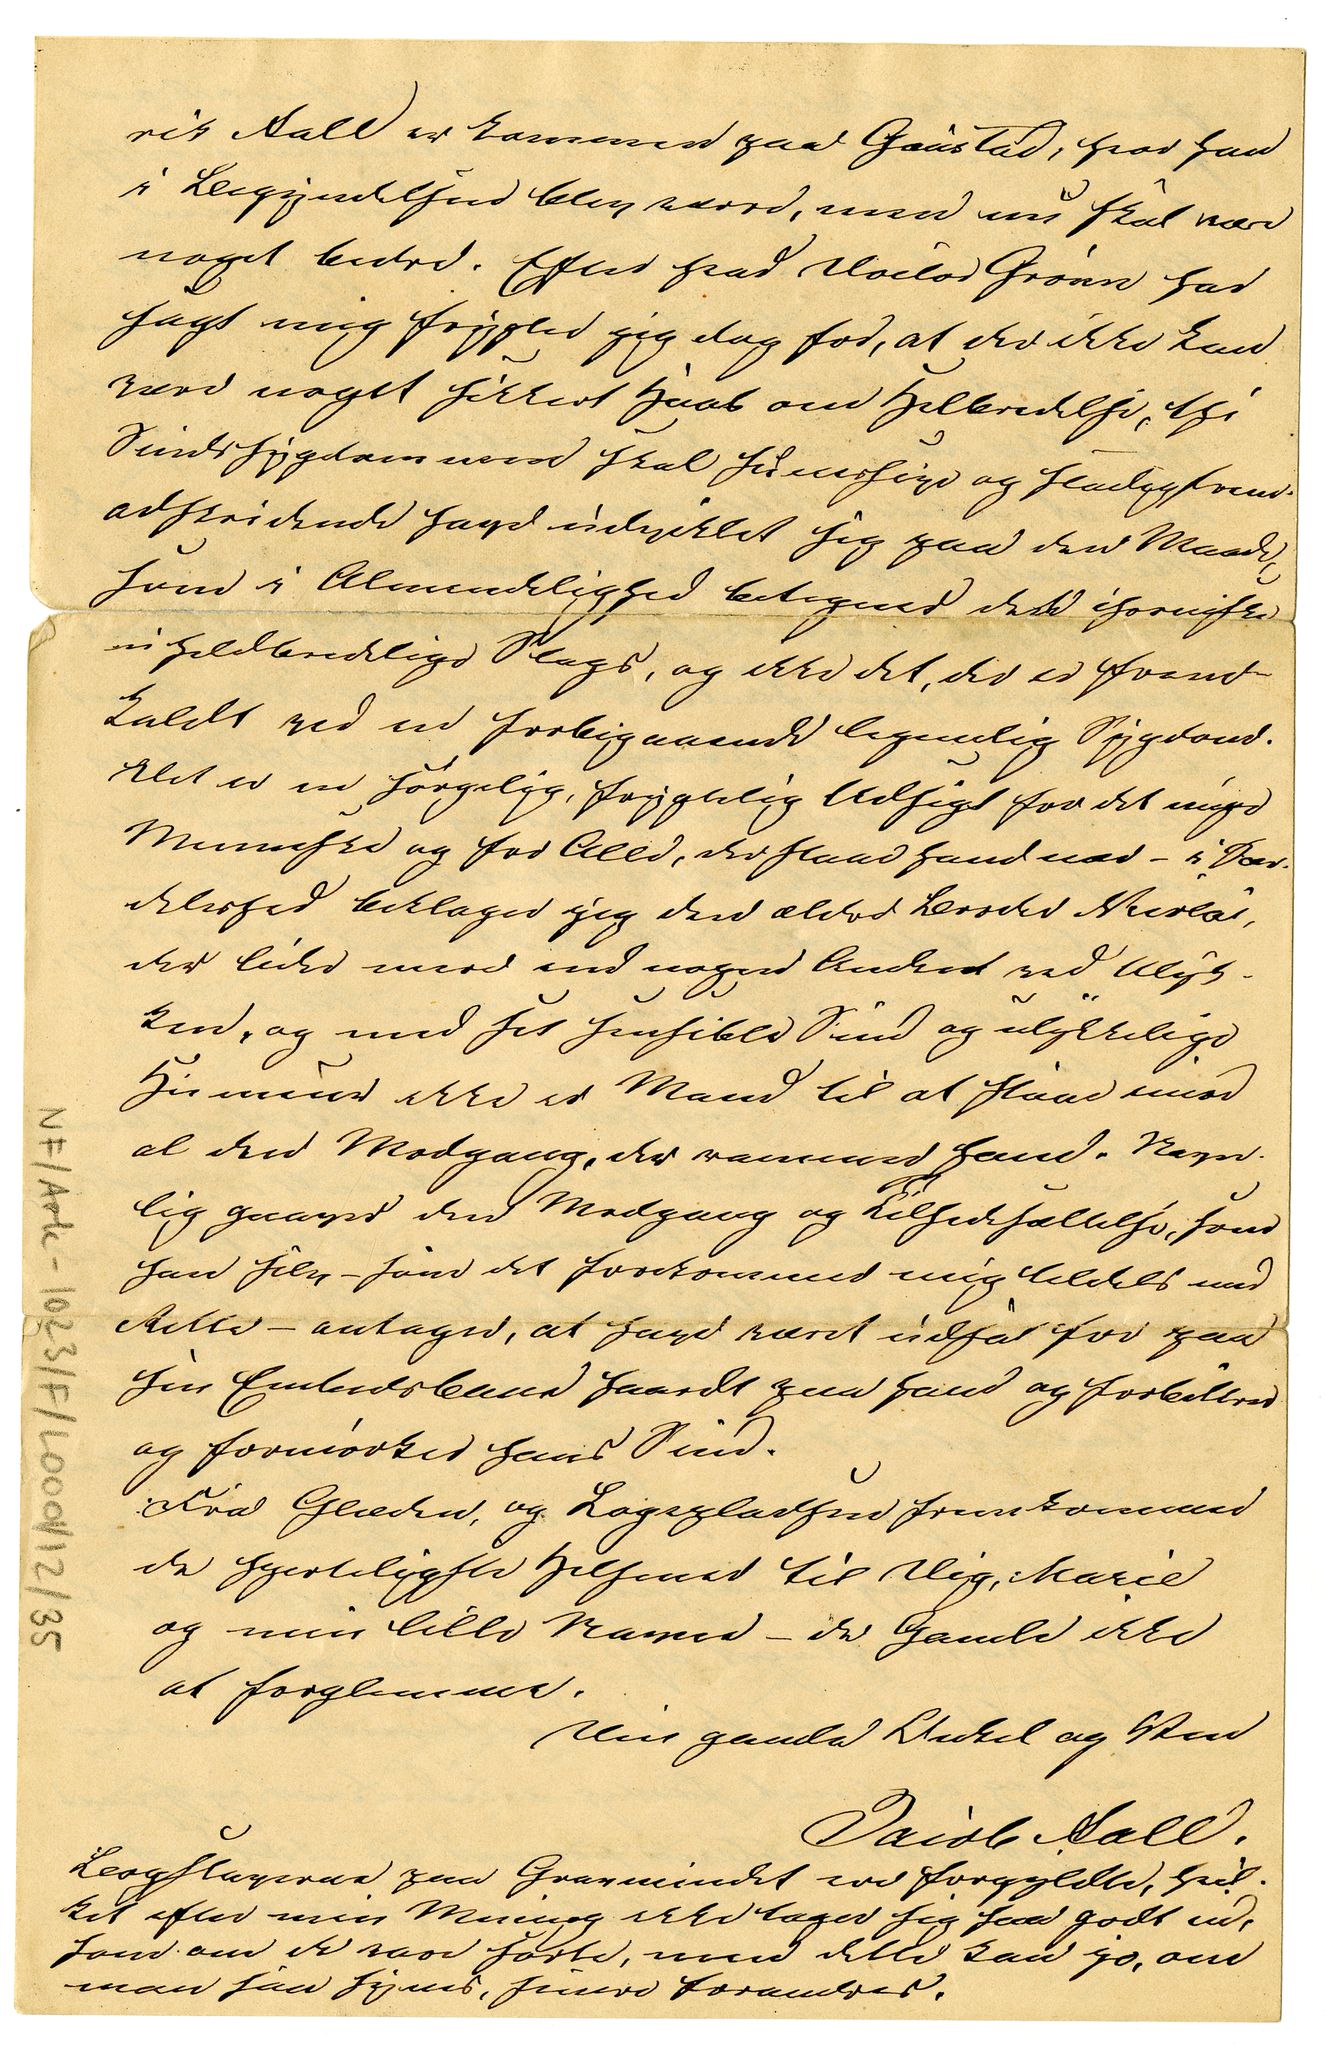 rik Aall er kommen paa Gaustad, hvor han
i Begyndelsen blev værre, men nu skal være
noget bedre. Efter hvad Doctor Grønn har
sagt mig frygter jeg dog for, at der ikke kan
være noget sikkert Haab om Helbredelse, thi
Sindssygdommen skal og stadig frem-
adskridende have udviklet sig paa den Maade,
som i Almindelighed betegner det chroniske
uhelbredelige Slags, og ikke det, der er frem-
kaldt ved en forbigaaende legemlig Sygdom.
Det er en sørgelig, frygtelig Udsigt for det unge
Menneske og for Alle, der staar ham nær – i Sær-
deleshed beklager jeg den ældre Broder Nicolai,
der lider mere end nogen Anden ved Ulyk-
ken, og med sit sensible Sind og ulykkelige
Humeur ikke er Mand til at staae imod
al den Modgang, der rammer ham. Navn-
lig gnaver den Modgang og Tilsidesættelse, som
han selv – som det forekommer mig tildels med
Rette – antager, at have været udsat for paa
sin Embedsbane haardt paa ham og forbittrer
og formørker hans Sind.
Fra Glæden, og Lagepladsen fremkommer
de hjerteligste Hilsener til Dig, Marie
og min lille Navne – de Gamle ikke
at forglemme.
Din gamle Onkel og Ven
Jacob Aall.
Bogstaverne paa Gravmindet ere forgyldte, hvil-
ket efter min Mening ikke tager sig saa godt ud,
som om de vare sorte, men dette kan jo, om
man saa synes, senere forandres.
NF/Ark-1023/F/L0001/2/35